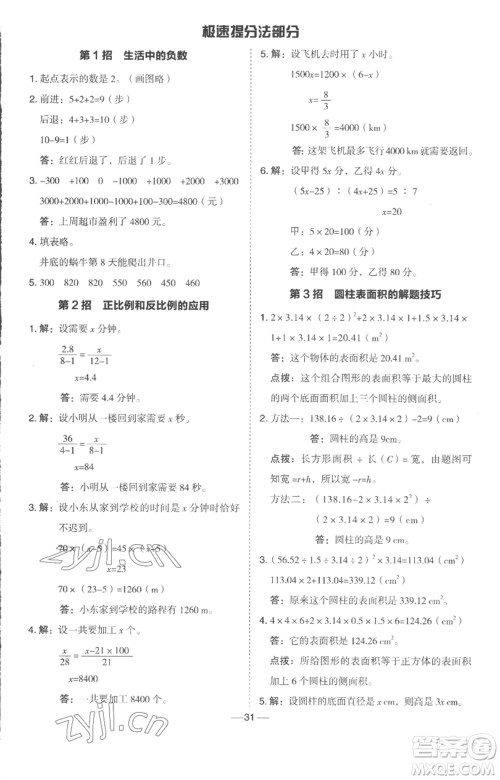 极速提分法部分
第 1 招 生活中的负数
1. 起点表示的数是 2。（画图略）
2. 前进：5+2+2=9（步）
后退：4+3+3=10（步）
10-9=1（步）
答：红红后退了，后退了 1 步。
3. -300 +400 -100 0 -1000 +1000 +2000
3000+2000+1000-100-300-1000+400-200=4800（元）
答：上周超市盈利了 4800 元。
4. 填表略。
井底的蜗牛第 8 天能爬出井口。
5. 300 820 550 460 450 320
第 2 招 正比例和反比例的应用
1. 解：设需要 x 分钟。
2.8/8-1 = x/12-1
x=4.4
答：需要 4.4 分钟。
2. 解：设小明从一楼回到家需要 x 秒。
36/4-1 = x/8-1
x=84
答：小明从一楼回到家需要 84 秒。
3. 解：设小东从家到学校的时间是 x 分钟时恰好
不迟到。
70×（x-5）=45×（x+5-）
x=23
70×（23-5）=1260（m）
答：小东家到学校的路程有 1260 m。
4. 解：设一共要加工 x 个。
x/28 = x-21×100/21
x=8400
答：一共要加工 8400 个。
5. 解：设飞机去时用了 x 小时。
1500x=1200×（6-x）
x=8/3
1500×8/3=4000（km）
答：这架飞机最多飞行 4000 km 就要返回。
6. 解：设甲得 5x 分，乙得 4x 分。
（5x-25）：（4x+25）=5：7
x=20
甲：5×20=100（分）
乙：4×20=80（分）
答：甲得 100 分，乙得 80 分。
第 3 招 圆柱表面积的解题技巧
1. 2×3.14×（2÷2）²+3.14×2×1+3.14×1.5×
1+3.14×1×1=20.41（m²）
答：这个物体的表面积是 20.41 m²。
点拨：这个组合图形的表面积等于最大的圆柱
的两个底面积加上三个圆柱的侧面积。
2. 方法一：138.16÷（2×3.14×2）-2=9（cm）
答：圆柱的高是 9cm。
点拨：长方形面积÷圆柱底面周长（C）的
长度=r+h，长度-r=h。
方法二：（138.16-2×3.14×2×2）÷
（2×3.14×2）=9（cm）
答：圆柱的高是 9 cm。
3. （56.52÷1.5÷3.14÷2）²×3.14×2=
113.04×2+113.04=339.12（cm²）
答：原来的表面积是 339.12 cm²。
4. 4×4×6+3.14×1.5×4+3.14×1×3=
124.26（cm²）
答：它的表面积是 124.26 cm²。
点拨：所给图形的表面积等于正方体的表面积
加上两个圆柱的侧面积。
5. 解：设圆柱的底面直径是 d cm，高是 h cm。
31
zyjl.cn
zyjl.cn
答案圈
MXQE.COM